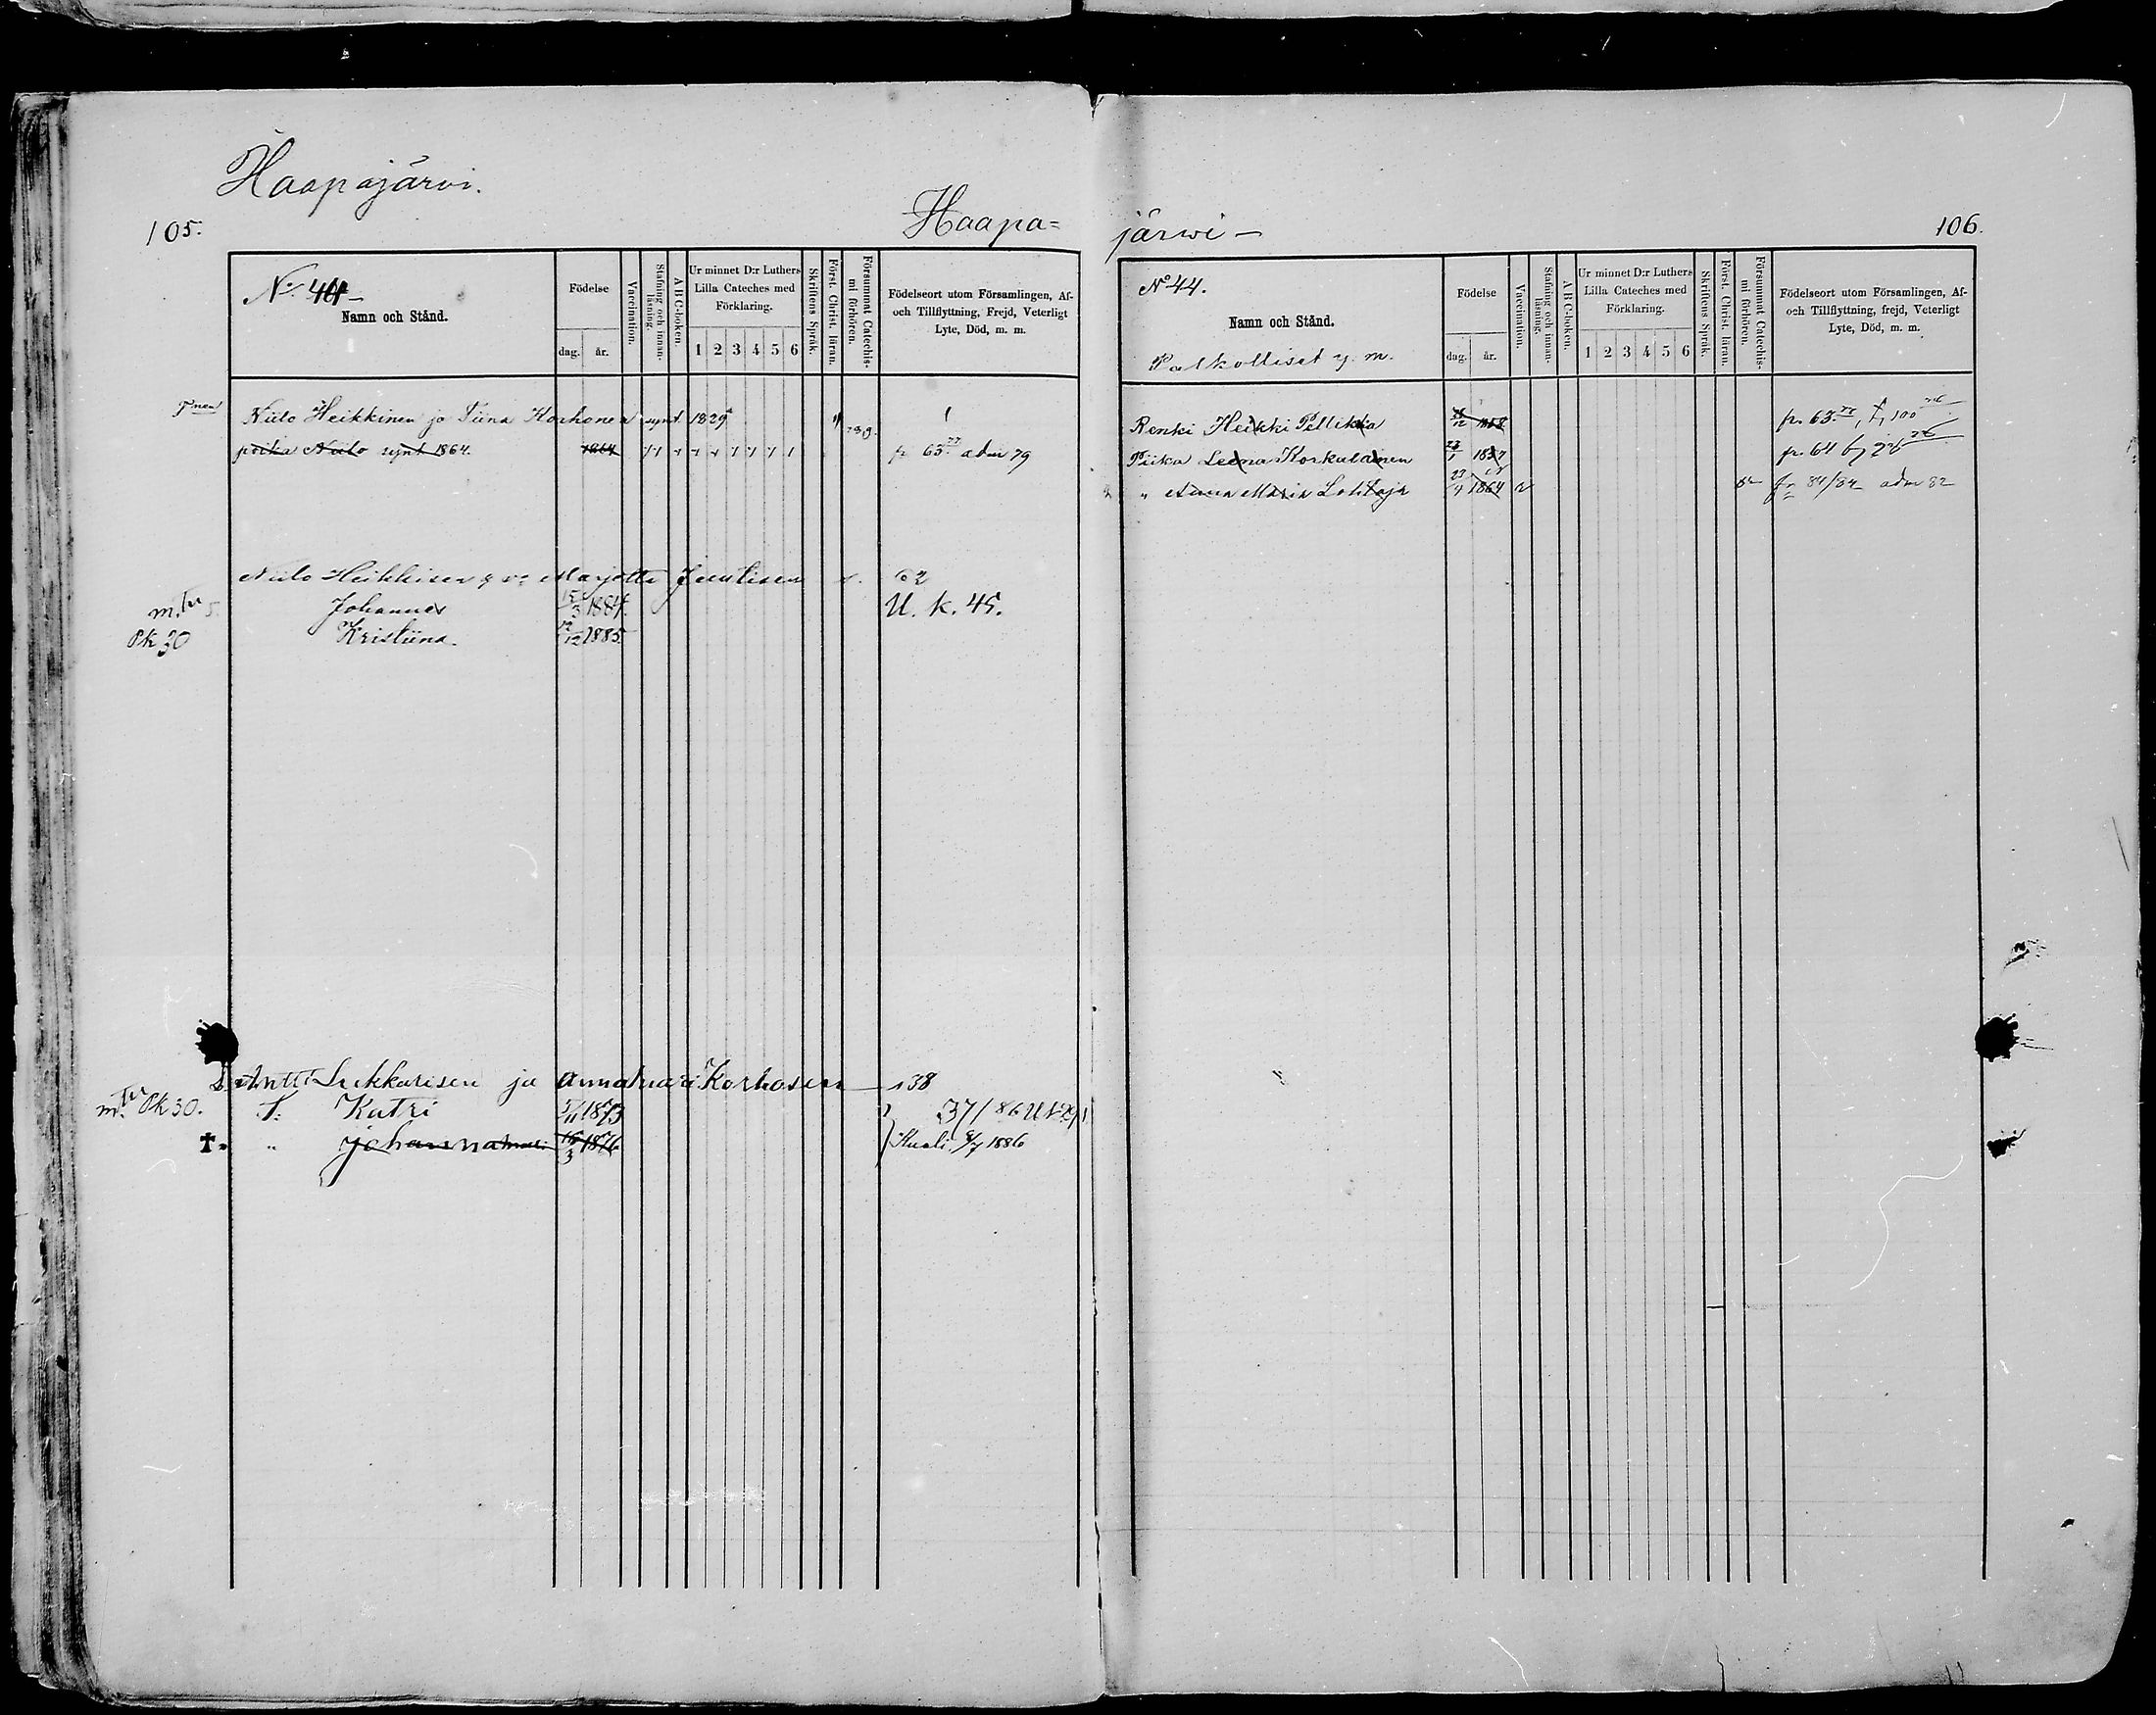 Haapajärvi.
105.
Haapa=
N:o 44
Namn och Stånd.
Födelse
dag. år.
Vaccination.
Stafning och innan-läsning.
A B C-boken.
Ur minnet D:r Luthers Lilla Cateches med Förklaring.
1 2 3 4 5 6
Skriftens Språk.
Först. Christ. läran.
Försummat Catechis-mi förhören.
Födelseort utom Församlingen, Af-
och Tillflyttning, Frejd, Veterligt
Lyte, Död, m. m.
Niilo Heikkinen ja Tiina Korhonen synt. 1829
poika Niilo synt 1864. 1864 adm 79
Niilo Heikkisen Marjotta 62
Johannes 15/3 1884. U. k. 45.
Pk 30 Kristiina 12 1885.
Antti Lukkarisen ja Korhosen 138
Pk 30. T. Katri 11 1873 37/86
† " Johanna 3 1876 Kuoli 8/7 1886
järwi —
106.
No 44.
Namn och Stånd.
Palkolliset y. m.
Födelse
dag. år.
Vaccination.
Stafning och innan-läsning.
A B C-boken.
Ur minnet D:r Luthers Lilla Cateches med Förklaring.
1 2 3 4 5 6
Skriftens Språk.
Först. Christ. läran.
Försummat Catechis-mi förhören.
Födelseort utom Församlingen, Af-
och Tillflyttning, frejd, Veterligt
Lyte, Död, m. m.
Renki Heikki Pellikka 12 1858 fr. 63
Piika Leena Korkalainen 1857 fr. 64
" Anna Maria 23/4 1864 fr 84/84 adm 82